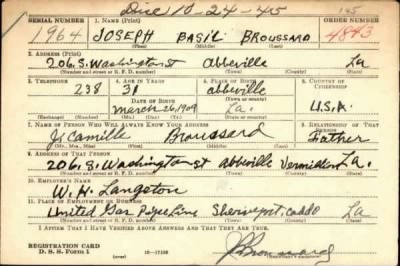 Dise 10-24-45 145
SERIAL NUMBER 1. NAME (Print) ORDER NUMBER
1964 JOSEPH BASIL BROUSSARD 4843
(First) (Middle) (Last)
2. ADDRESS (Print)
206, S. Washington St Abbeville La
(Number and street or R. F. D. number) (Town) (County) (State)
3. TELEPHONE 4. AGE IN YEARS 5. PLACE OF BIRTH 6. COUNTRY OF CITIZENSHIP
238 31 abbeville
DATE OF BIRTH (Town or county)
March 26, 1909 La. U.S.A.
(Mo.) (Day) (Yr.) (State or country)
7. NAME OF PERSON WHO WILL ALWAYS KNOW YOUR ADDRESS 8. RELATIONSHIP OF THAT PERSON
J. Camille Broussard Father
(Mr., Mrs., Miss) (First) (Middle) (Last)
9. ADDRESS OF THAT PERSON
206, S. Washington St Abbeville Vermilion La.
(Number and street or R. F. D. number) (Town) (County) (State)
10. EMPLOYER'S NAME
W. H. Langston
11. PLACE OF EMPLOYMENT OR BUSINESS
United Gas Pipe Line Shreveport, Caddo La
(Number and street or R. F. D. number) (Town) (County) (State)
I AFFIRM THAT I HAVE VERIFIED ABOVE ANSWERS AND THAT THEY ARE TRUE.
REGISTRATION CARD
D. S. S. Form 1 16-17105 J Broussard